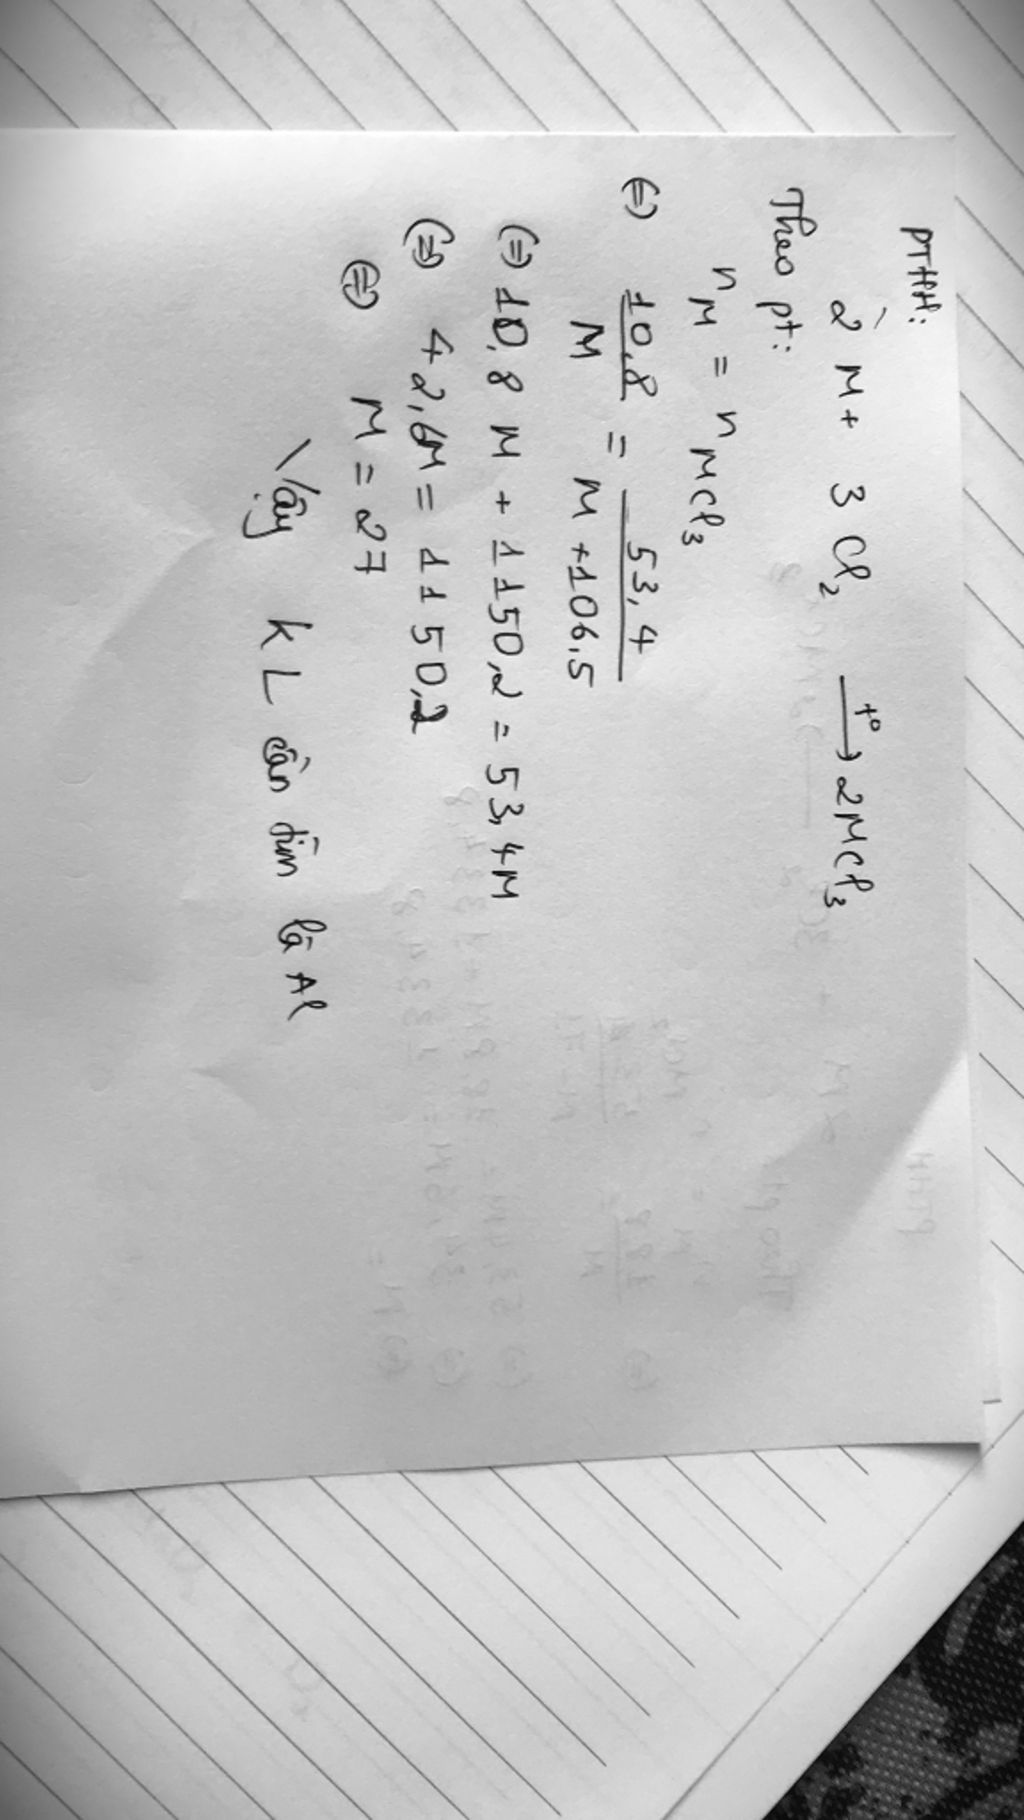 PTHH:
2 M + 3 Cl2 t° → 2MCl3
Theo pt:
nM = nMCl3
(=) 10,8/M = 53,4/M+106,5
(=) 10,8 M + 1150,2 = 53,4M
(=) 42,6M = 1150,2
(=) M = 27
Vậy KL cần tìm là Al